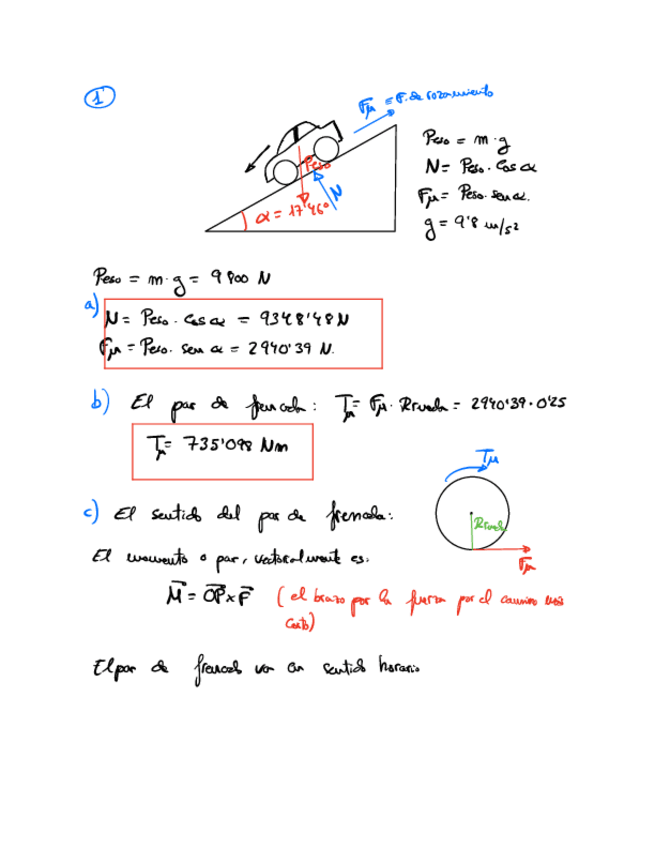 1
Fμ = F. de rozamiento
Peso = m·g
N = Peso·Cos α
Fμ = Peso·sen α.
g = 9'8 m/s²
Peso
N
α = 17'46°
Peso = m·g = 9800 N
a)
N = Peso·Cos α = 9348'48 N
Fμ = Peso·sen α = 2940'39 N.
b) El par de frenada: Tμ = Fμ·Rrueda = 2940'39·0'25
Tμ = 735'098 Nm
Tμ
Rrueda
Fμ
c) El sentido del par de frenada:
El momento o par, vectorialmente es:
M = OP x F (el brazo por la fuerza por el camino más
corto)
El par de frenada va en sentido horario